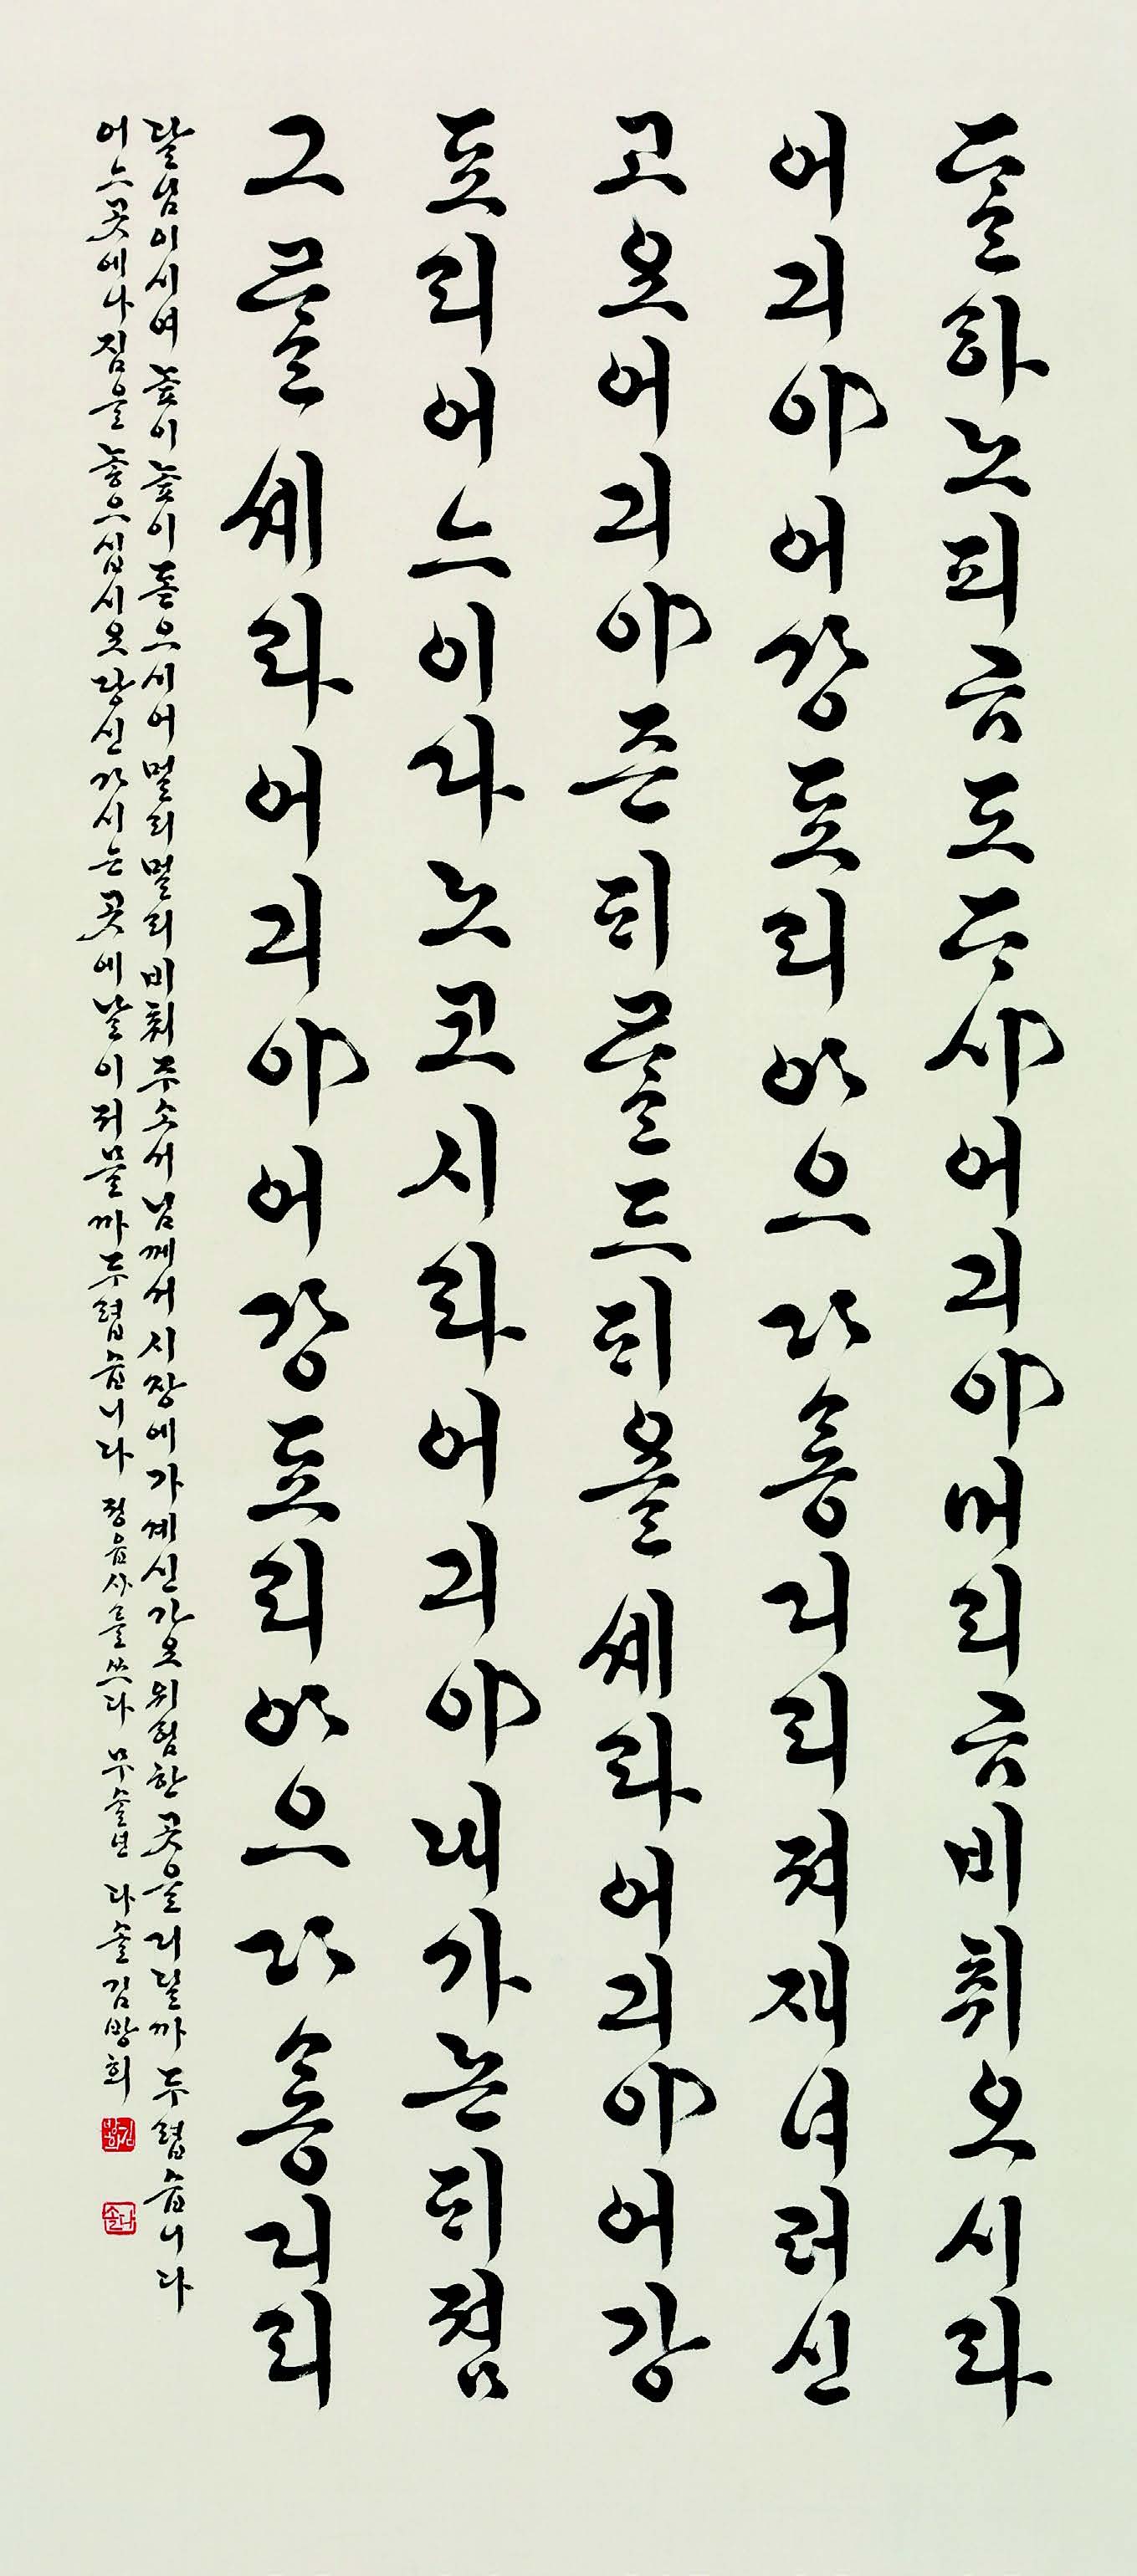 ᄃᆞᆯ하노피곰도ᄃᆞ샤어긔야머리곰비취오시라
어긔야어강됴리아으다롱디리져재녀러신
고요어긔야즌ᄃᆡᄅᆞᆯ드ᄃᆡ욜셰라어긔야어강
됴리어느이다노코시라어긔야내가논ᄃᆡ졈
그ᄅᆞᆯ셰라어긔야어강됴리아으다롱디리
달님이시여 높이높이 돋으시어 멀리멀리 비취주소서 님께서 시장에 가계신가요 위험한 곳을 디딜까 두렵습니다
어느곳에나 짐을 놓으십시오 당신 가시는 곳에 날이 저물까 두렵습니다 정읍사를 쓰다 무술년 다솔 김방희